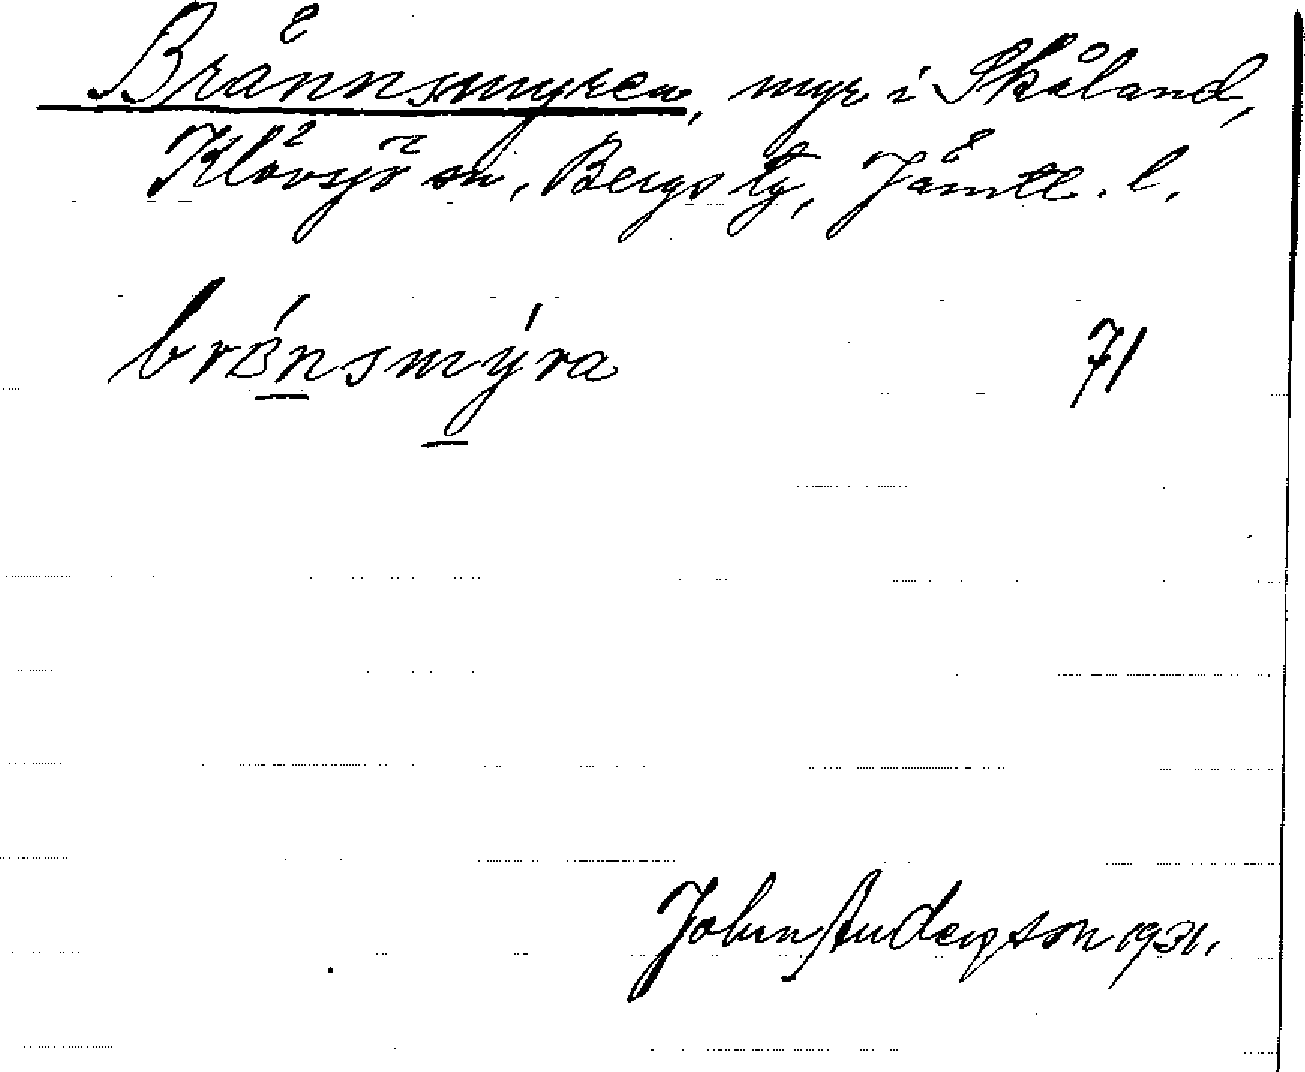 Brännsmyren, myr i Skåland,
Klövsjö sn, Bergs tg, Jämtl. l.
brǝ́nsmýra 71
John Anderson 1931.